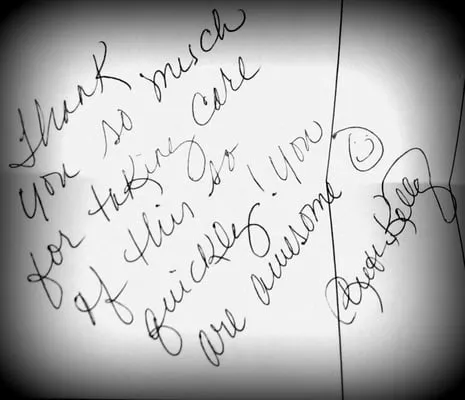 Thank
you so much
for taking care
of this so
quickly! You
are awesome